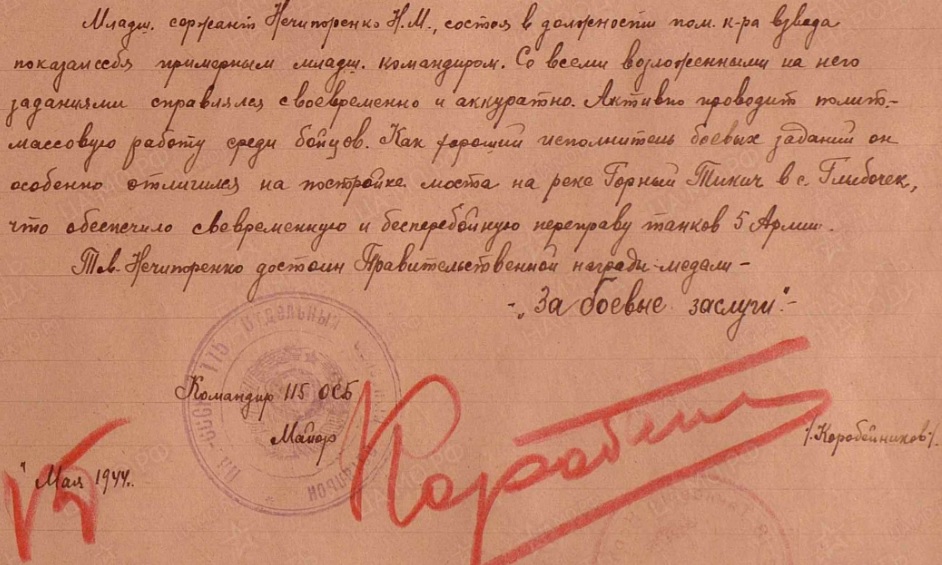 Младш. сержант Нечипоренко Н.М., состоя в должности пом. к-ра взвода
показал себя примерным младш. командиром. Со всеми возложенными на него
заданиями справлялся своевременно и аккуратно. Активно проводит полит.-
массовую работу среди бойцов. Как хороший исполнитель боевых заданий он
особенно отличился на постройке моста на реке Горный Тикич в с. Глыбочек,
что обеспечило своевременную и бесперебойную переправу танков 5 Армии.
Тов. Нечипоренко достоин Правительственной награды-медали-
-„За боевые заслуги"-
115 Отдельный
Командир 115 ОСБ
Майор
/Коробейников/
15 " Мая 1944г.